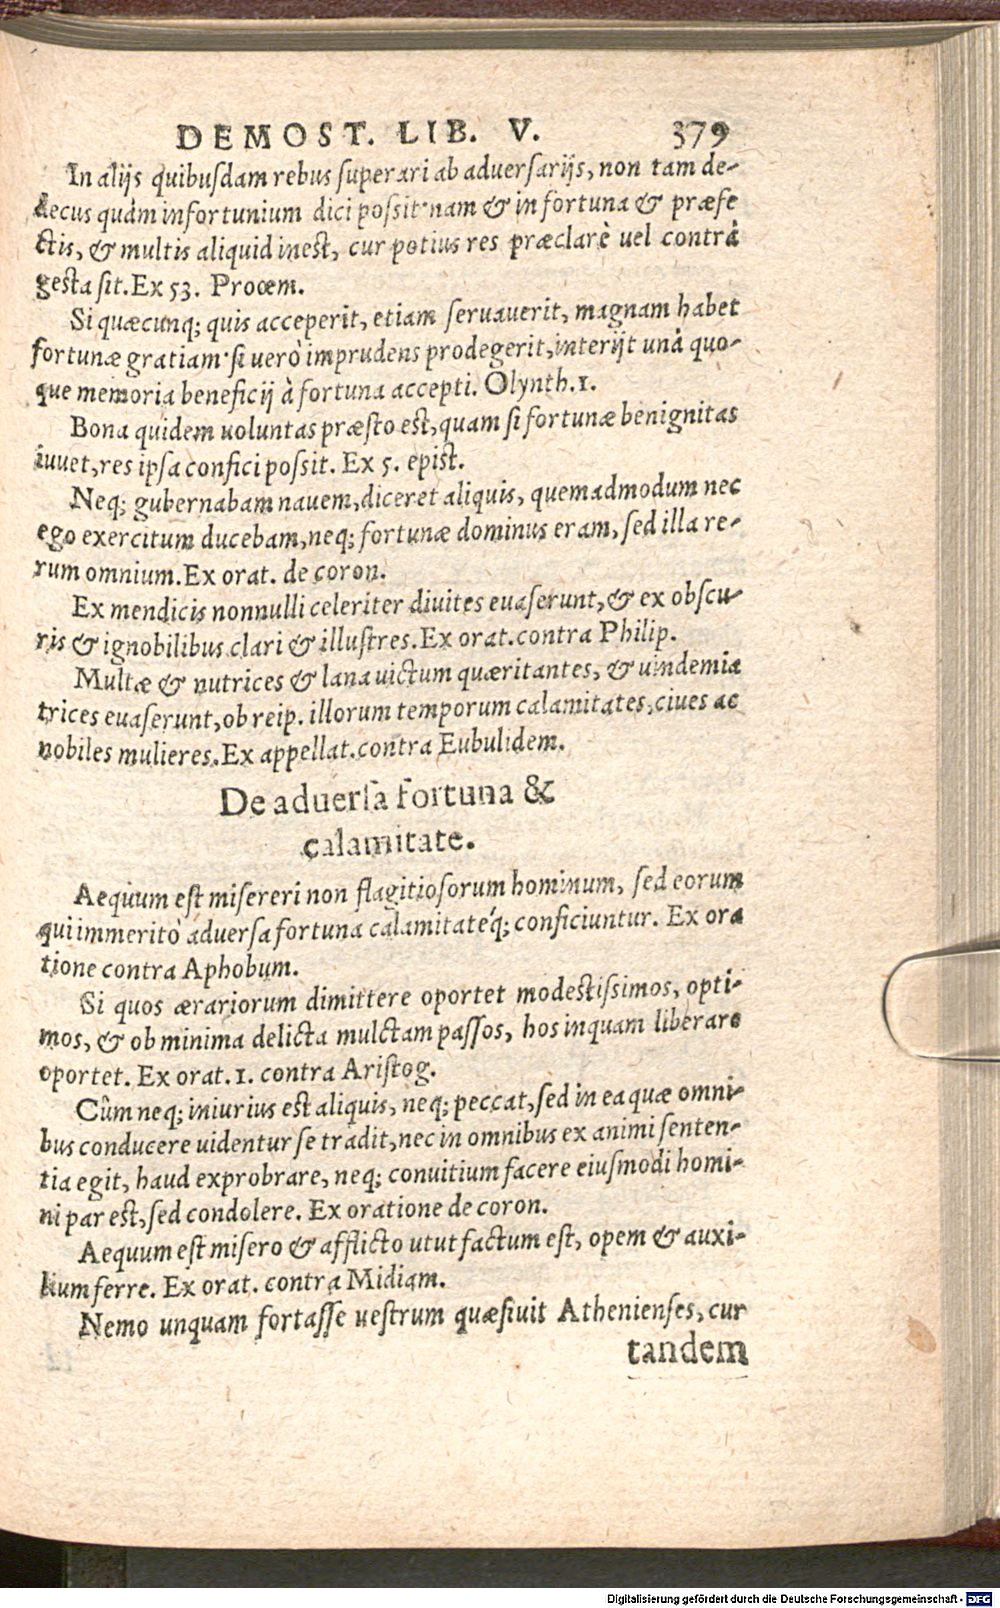 DEMOST. LIB. V. 379
In alijs quibusdam rebus superari ab aduersarijs, non tam de-
decus quàm infortunium dici possit· nam & in fortuna & præfe
ctis, & multis aliquid inest, cur potius res præclarè uel contrà
gesta sit. Ex 53. Proœm.
Si quæcunq; quis acceperit, etiam seruauerit, magnam habet
fortunæ gratiam· si uerò imprudens prodegerit, interijt unà quo-
que memoria beneficij à fortuna accepti. Olynth.1.
Bona quidem uoluntas præsto est, quam si fortunæ benignitas
iuuet, res ipsa confici possit. Ex 5. epist.
Neq; gubernabam nauem, diceret aliquis, quemadmodum nec
ego exercitum ducebam, neq; fortunæ dominus eram, sed illa re-
rum omnium. Ex orat. de coron.
Ex mendicis nonnulli celeriter diuites euaserunt, & ex obscu-
ris & ignobilibus clari & illustres. Ex orat. contra Philip.
Multæ & nutrices & lana uictum quæritantes, & uindemia
trices euaserunt, ob reip. illorum temporum calamitates, ciues ac
nobiles mulieres. Ex appellat. contra Eubulidem.
De aduersa fortuna &
calamitate.
Aequum est misereri non flagitiosorum hominum, sed eorum
qui immeritò aduersa fortuna calamitateq́; conficiuntur. Ex ora
tione contra Aphobum.
Si quos ærariorum dimittere oportet modestissimos, opti-
mos, & ob minima delicta mulctam passos, hos inquam liberare
oportet. Ex orat. 1. contra Aristog.
Cûm neq; iniurius est aliquis, neq; peccat, sed in ea quæ omni-
bus conducere uidentur se tradit, nec in omnibus ex animi senten-
tia egit, haud exprobrare, neq; conuitium facere eiusmodi homi-
ni par est, sed condolere. Ex oratione de coron.
Aequum est misero & afflicto utut factum est, opem & auxi-
lium ferre. Ex orat. contra Midiam.
Nemo unquam fortasse uestrum quæsiuit Athenienses, cur
tandem
Digitalisierung gefördert durch die Deutsche Forschungsgemeinschaft - DFG